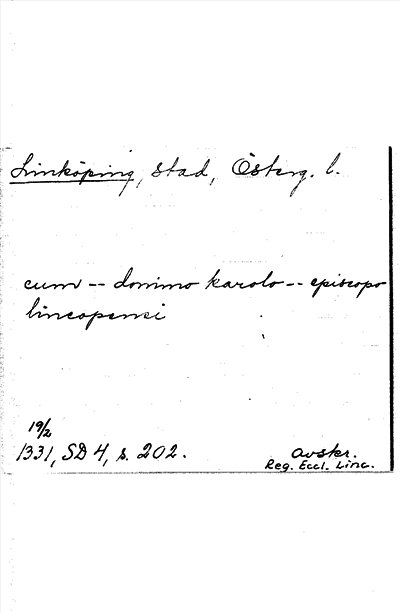 Linköping, stad, Österg. l.
cum -- domino karolo -- episcopo
lincopensi
19/2
1331, SD 4, s. 202.
avskr.
Reg. Eccl. Linc.